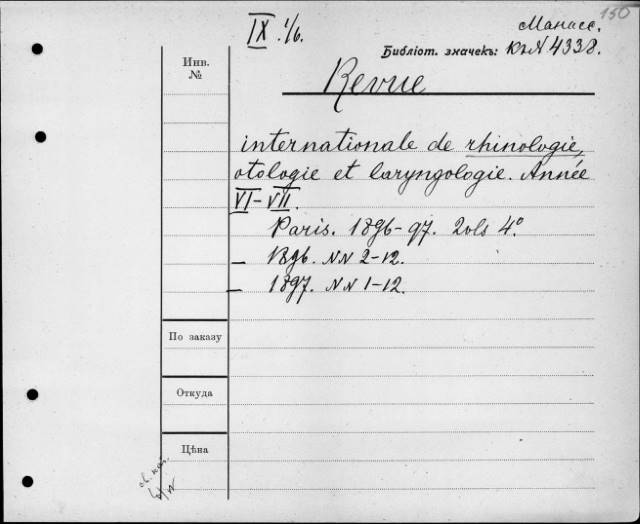 150
IX. 1/6.
Манасс.
Библіот. значекъ: КъN 4338.
Инв.
№
Revue
internationale de rhinologie,
otologie et laryngologie. Année
VI–VII.
Paris. 1896–97. 2 vols 4°
– 1896. NN 2–12.
– 1897. NN 1–12.
По заказу
Откуда
Цѣна